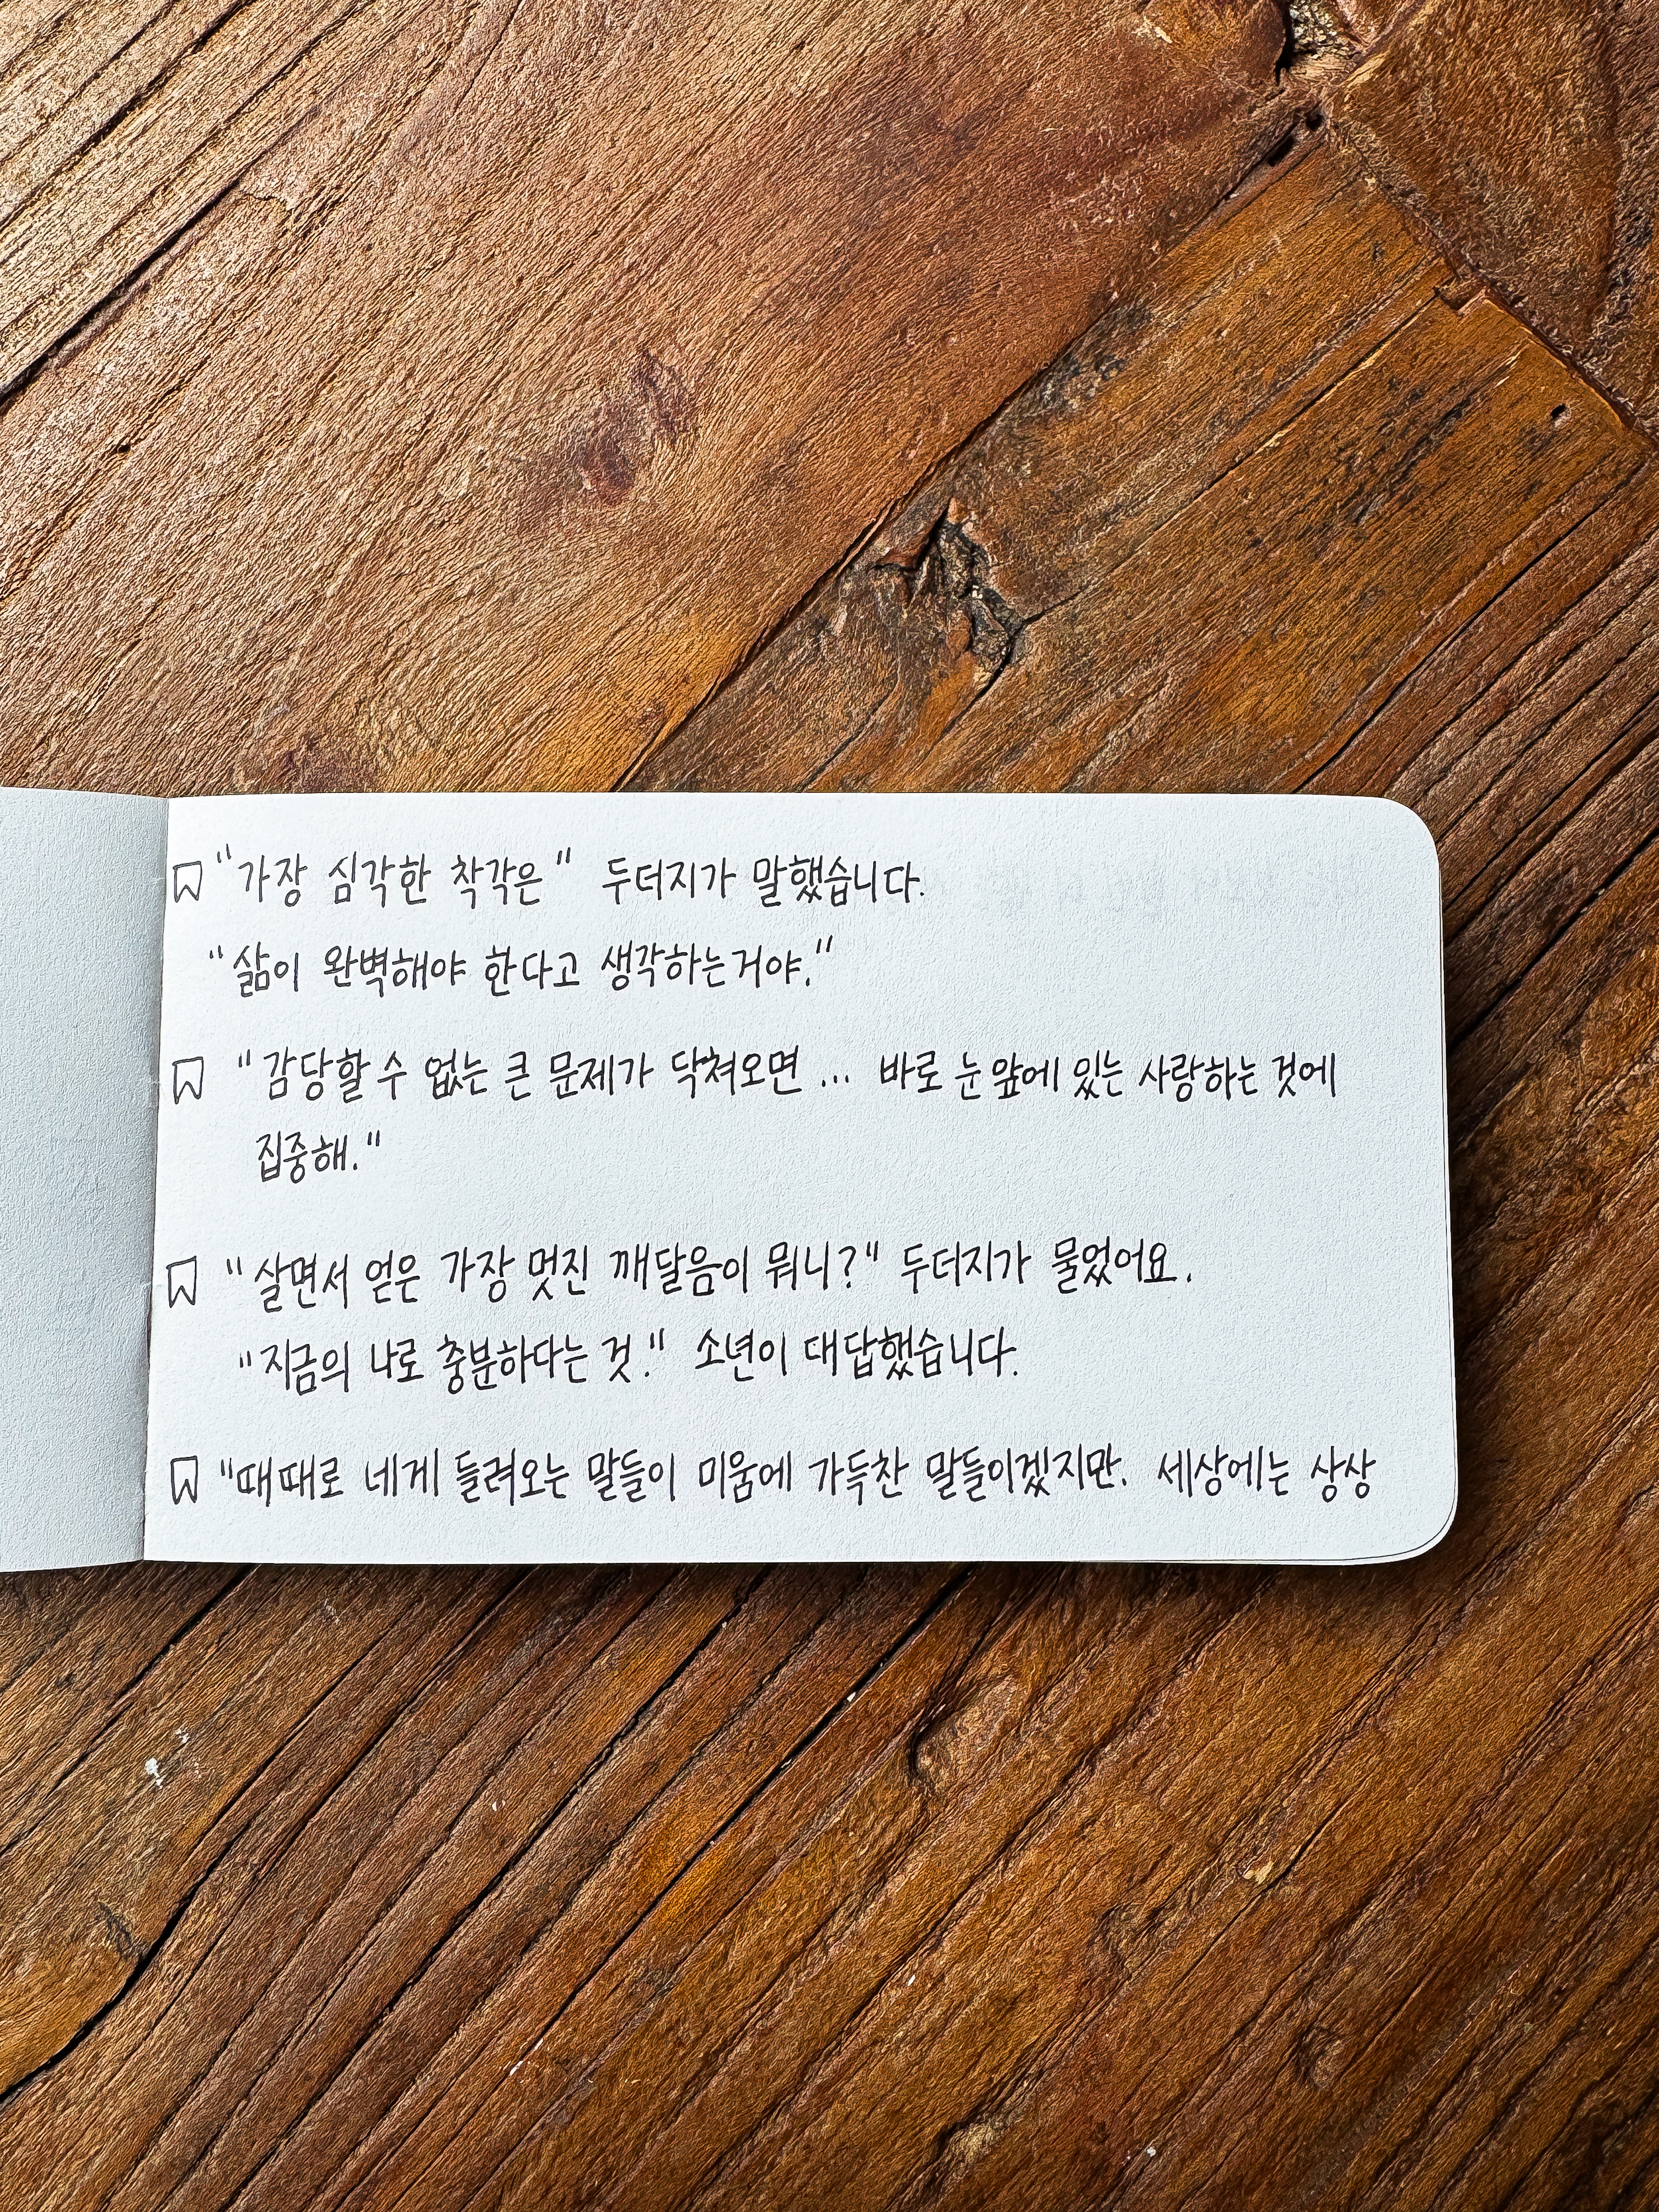 "가장 심각한 착각은" 두더지가 말했습니다.
"삶이 완벽해야 한다고 생각하는거야."
"감당할 수 없는 큰 문제가 닥쳐오면... 바로 눈 앞에 있는 사랑하는 것에
집중해."
"살면서 얻은 가장 멋진 깨달음이 뭐니?" 두더지가 물었어요.
"지금의 나로 충분하다는 것." 소년이 대답했습니다.
"때때로 네게 들려오는 말들이 미움에 가득찬 말들이겠지만. 세상에는 상상